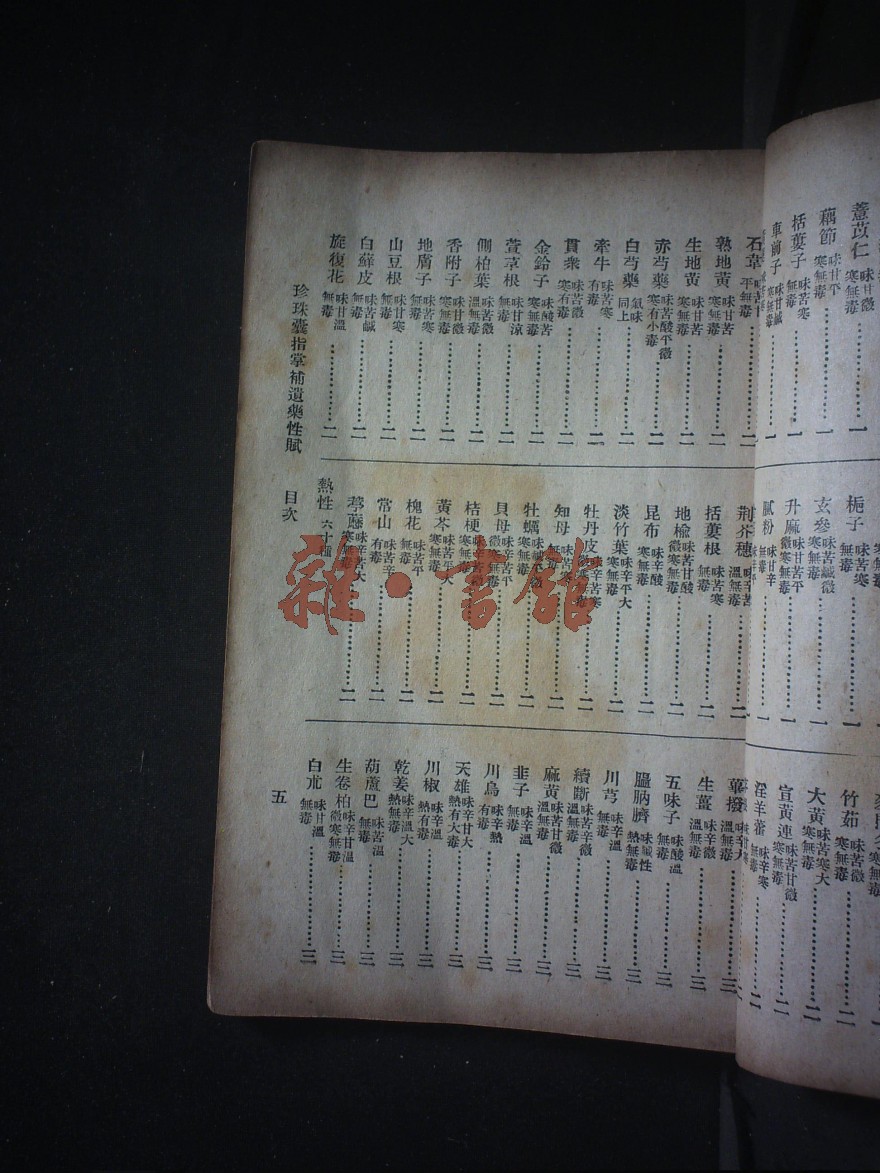 薏苡仁 味甘微寒無毒 一
藕節 味甘平寒無毒 一
栝蔞子 味苦寒無毒 一
車前子 味甘鹹寒無毒 一
梔子 味苦寒無毒 一
玄參 味苦鹹微寒無毒 一
升麻 味甘苦平微寒無毒 一
膩粉 味甘辛無毒 一
竹茹 味苦微寒無毒 二
大黃 味苦寒大寒無毒 二
宣黃連 味苦甘微寒無毒 二
淫羊藿 味辛寒無毒 二
石韋 平無毒 二
熟地黃 味甘苦寒無毒 二
生地黃 味甘苦寒無毒 二
赤芍藥 味苦酸平微寒有小毒 二
白芍藥 氣味同上 二
牽牛 味苦寒有毒 二
貫衆 味苦微寒有毒 二
金鈴子 味酸苦寒無毒 二
萱草根 味甘涼寒無毒 二
側柏葉 味苦微溫無毒 二
香附子 味甘微寒無毒 二
地膚子 味苦寒無毒 二
山豆根 味甘寒無毒 二
白蘚皮 味苦鹹無毒 二
旋復花 味甘溫無毒 二
荆芥穗 味辛苦溫無毒 二
括蔞根 味苦寒無毒 二
地楡 味苦甘酸微寒無毒 二
昆布 味辛酸寒無毒 二
淡竹葉 味辛平大寒無毒 二
牡丹皮 味辛苦寒微寒無毒 二
知母 味苦寒無毒 二
牡蠣 味鹹平微寒無毒 二
貝母 味辛苦平微寒無毒 二
桔梗 味辛苦寒無毒 二
黃芩 味苦平大寒無毒 二
槐花 味苦平無毒 二
常山 味苦辛有毒 二
葶藶 味辛苦大寒無毒 二
熱性 六十種
蓽撥 味辛大溫無毒 三
生薑 味辛微溫無毒 三
五味子 味酸溫無毒 三
膃肭臍 味鹹性熱無毒 三
川芎 味辛溫無毒 三
續斷 味苦辛微溫無毒 三
麻黃 味苦甘微溫無毒 三
韭子 味辛溫無毒 三
川烏 味辛熱有毒 三
天雄 味辛甘大熱有大毒 三
川椒 味辛溫熱有毒 三
乾姜 味辛溫大熱無毒 三
葫蘆巴 味苦溫無毒 三
生卷柏 味辛甘溫微寒無毒 三
白朮 味甘溫無毒 三
珍珠囊指掌補遺藥性賦 目次 五
雜·書館